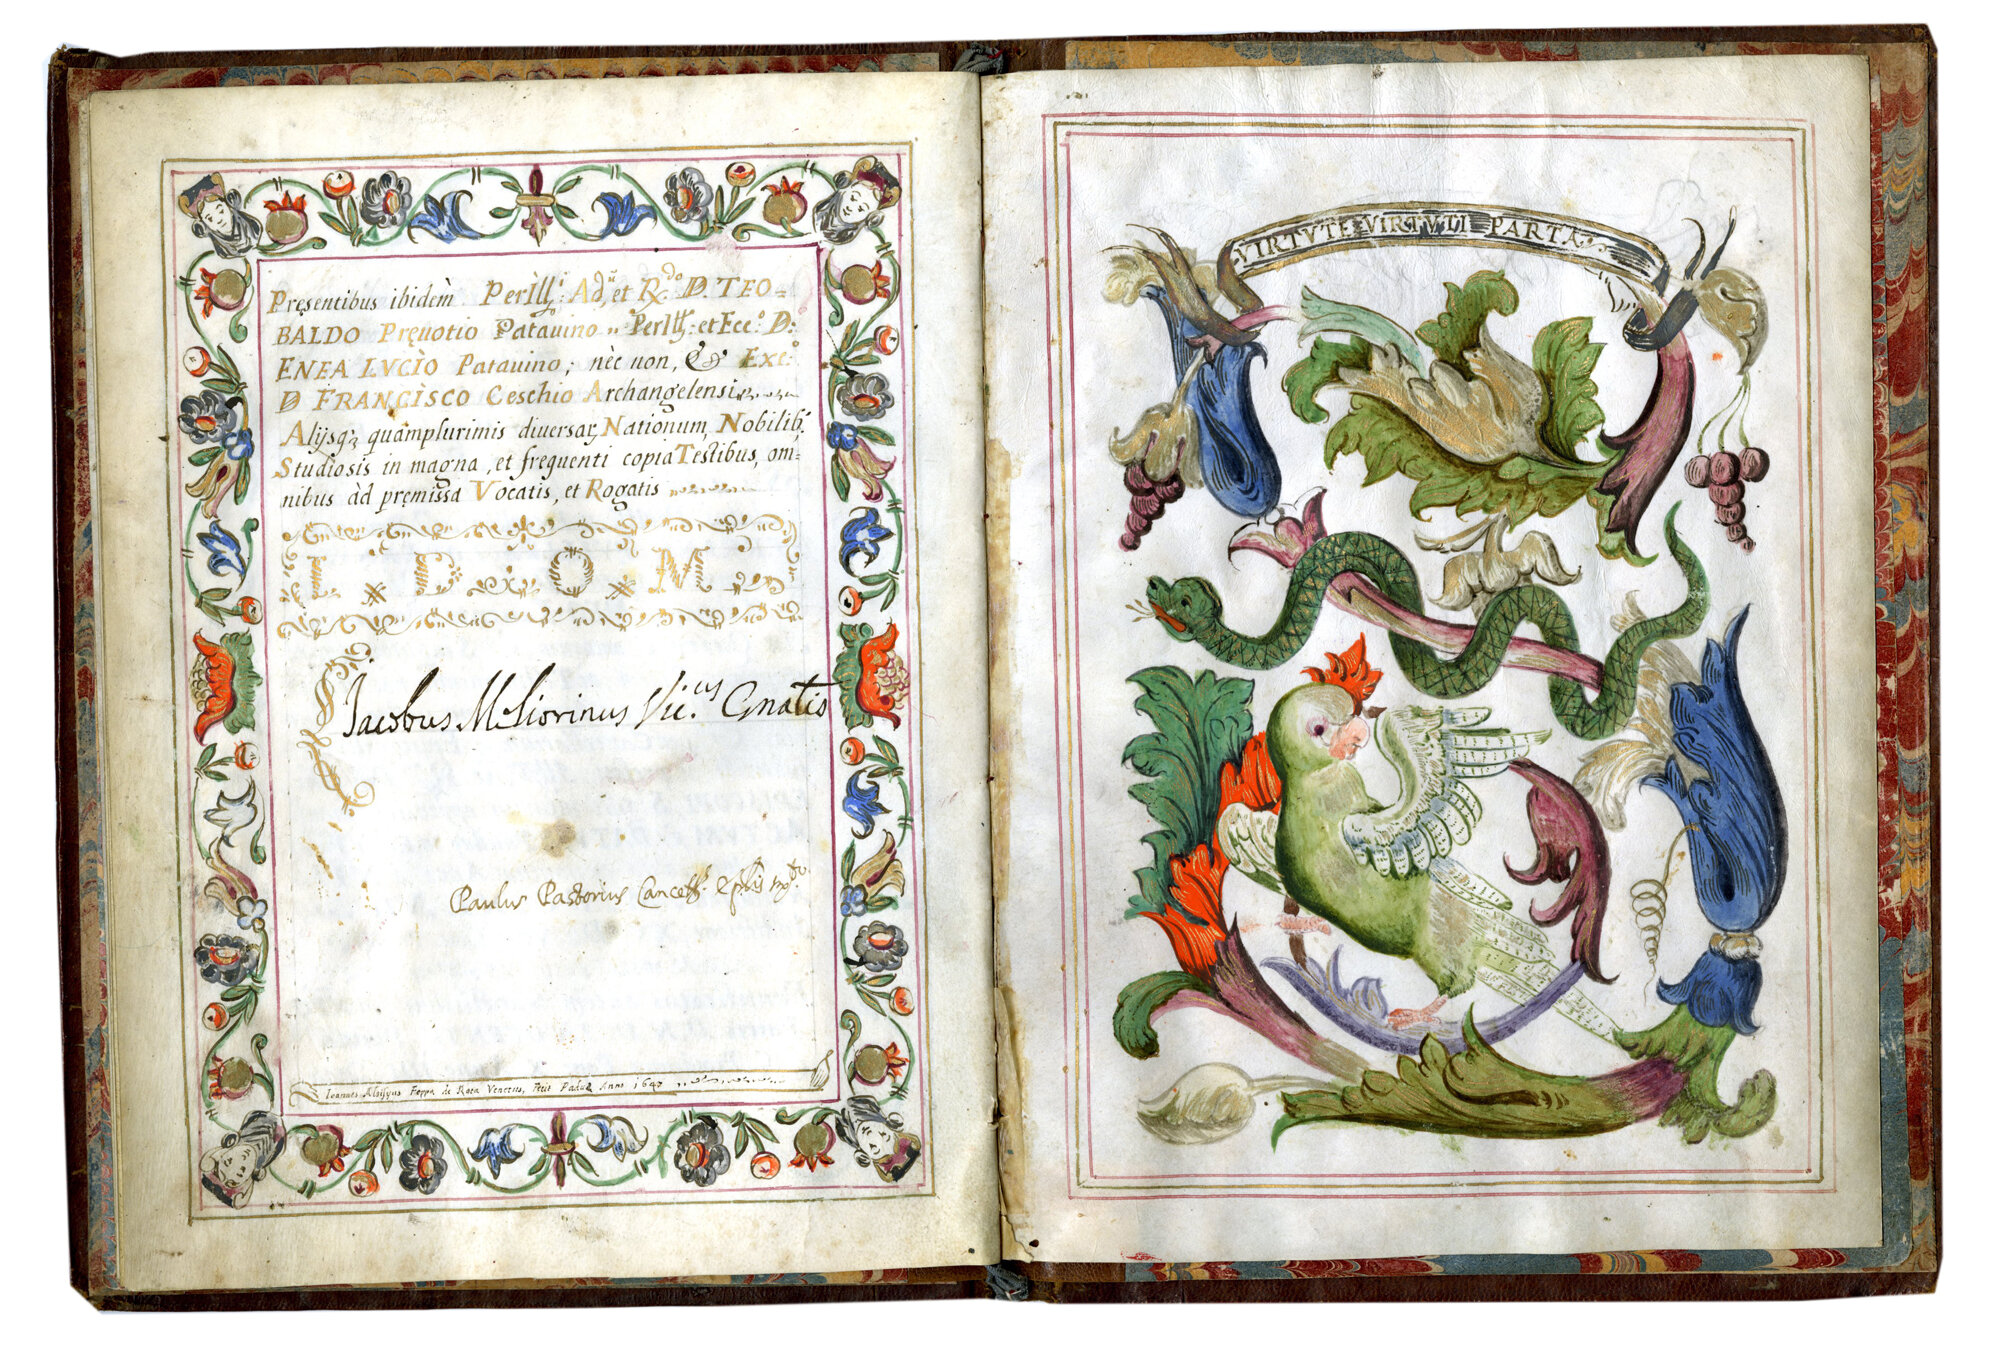 Presentibus ibidem Perill: Ad: et R.do D. TEO-
BALDO Prevotio Patavino, Perill: et Ecc: D:
ENEA LVCIO Patavino; nèc non, & Exc:
D FRANCISCO Ceschio Archangelensi
Alijsq; quamplurimis diversar, Nationum, Nobilib,
Studiosis in magna, et frequenti copia Testibus, om-
nibus àd premissa Vocatis, et Rogatis
L. D. O. M.
Jacobus Meliorinus Vic.us Gnalis
Paulus Pastorius Cancell.
Ioannes Aloijsius Foppa de Roca Venetus, Fecit Paduæ Anno 1647
VIRTVTE VIRTVTI PARTA